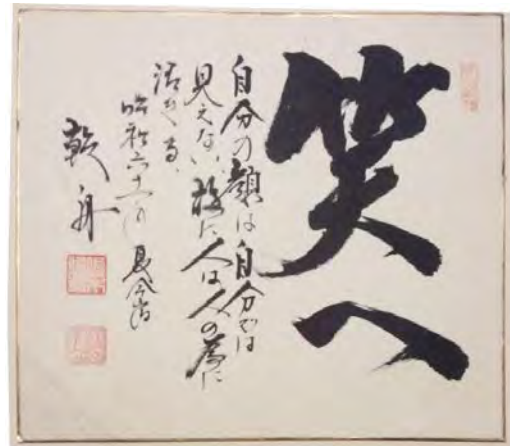 笑へ
自分の顔は自分では
見えない、故に人は人の為に
活きる、
昭和六十一
夏
乾舟